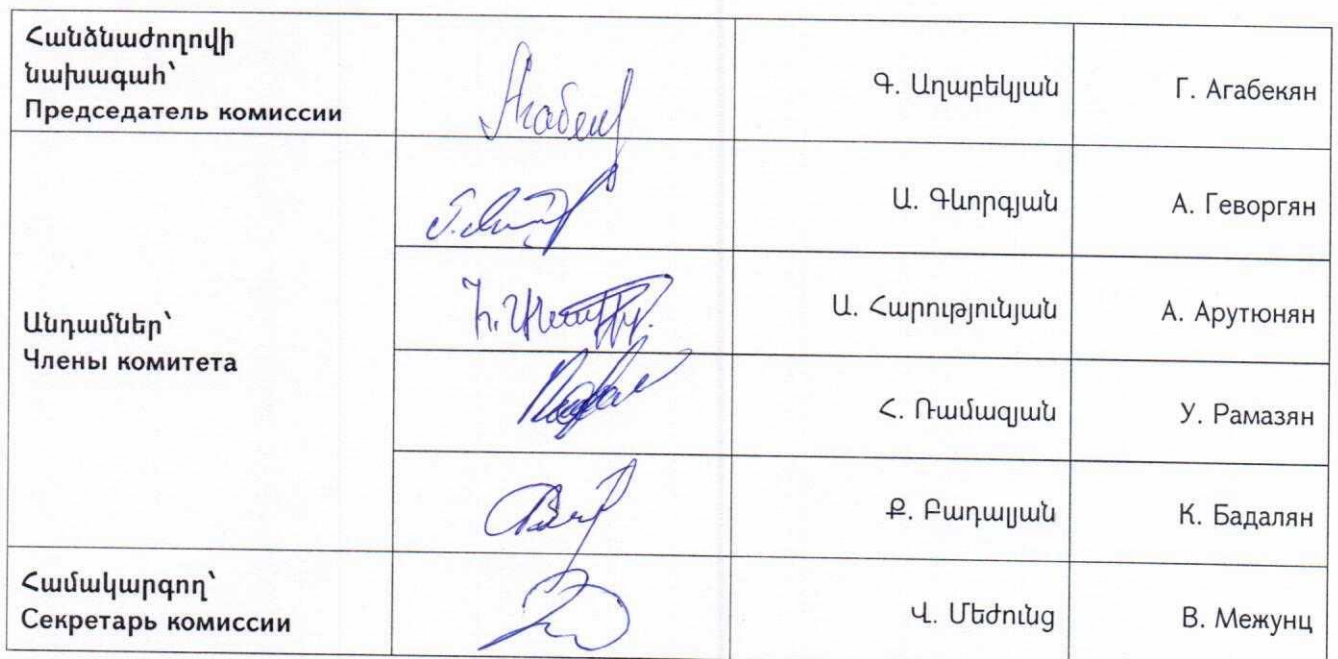 Հանձնաժողովի
նախագահ՝
Председатель комиссии
Գ. Աղաբեկյան
Г. Агабекян
Ա. Գևորգյան
А. Геворгян
Անդամներ՝
Члены комитета
Ա. Հարությունյան
А. Арутюнян
Հ. Ռամազյան
У. Рамазян
Ք. Բադալյան
К. Бадалян
Համակարգող՝
Секретарь комиссии
Վ. Մեժունց
В. Межунц